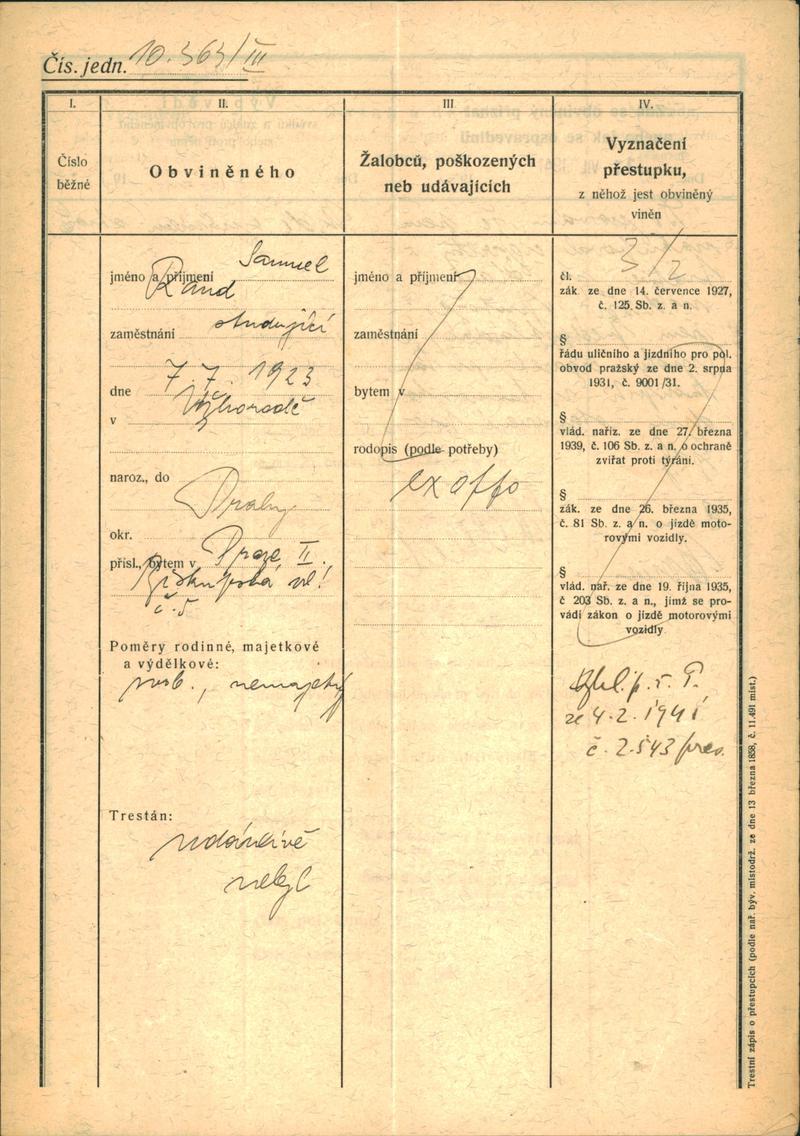 Čís. jedn. 10.363/III
I.
II.
III
IV.
Číslo
běžné
Obviněného
Žalobců, poškozených
neb udávajících
Vyznačení
přestupku,
z něhož jest obviněný
viněn
Samuel
jméno a příjmení
Rand
zaměstnání studující
dne 7. 7. 1923
v Výhoradě
naroz., do
Prahy
okr.
přísl., bytem v Praze II.
Biskupská ul.
č. 5
Poměry rodinné, majetkové
a výdělkové:
svob., nemajetný
Trestán:
udánlivě
nebyl
jméno a příjmení
zaměstnání
bytem v
rodopis (podle potřeby)
ex offo
3/2
čl.
zák. ze dne 14. července 1927,
č. 125. Sb. z. a n.
§
řádu uličního a jízdního pro pol.
obvod pražský ze dne 2. srpna
1931, č. 9001/31.
§
vlád. naříz. ze dne 27. března
1939, č. 106 Sb. z. a n. o ochraně
zvířat proti týrání.
§
zák. ze dne 26. března 1935,
č. 81 Sb. z. a n. o jízdě moto-
rovými vozidly.
§
vlád. nař. ze dne 19. října 1935,
č 203 Sb. z. a n., jímž se pro-
vádí zákon o jízdě motorovými
vozidly
Vyhl. p. ř. P.
ze 4. 2. 1941
č. 2.543 pres.
Trestní zápis o přestupcích (podle nař. býv. místodrž. ze dne 13 března 1858, č. 11.491 míst.)